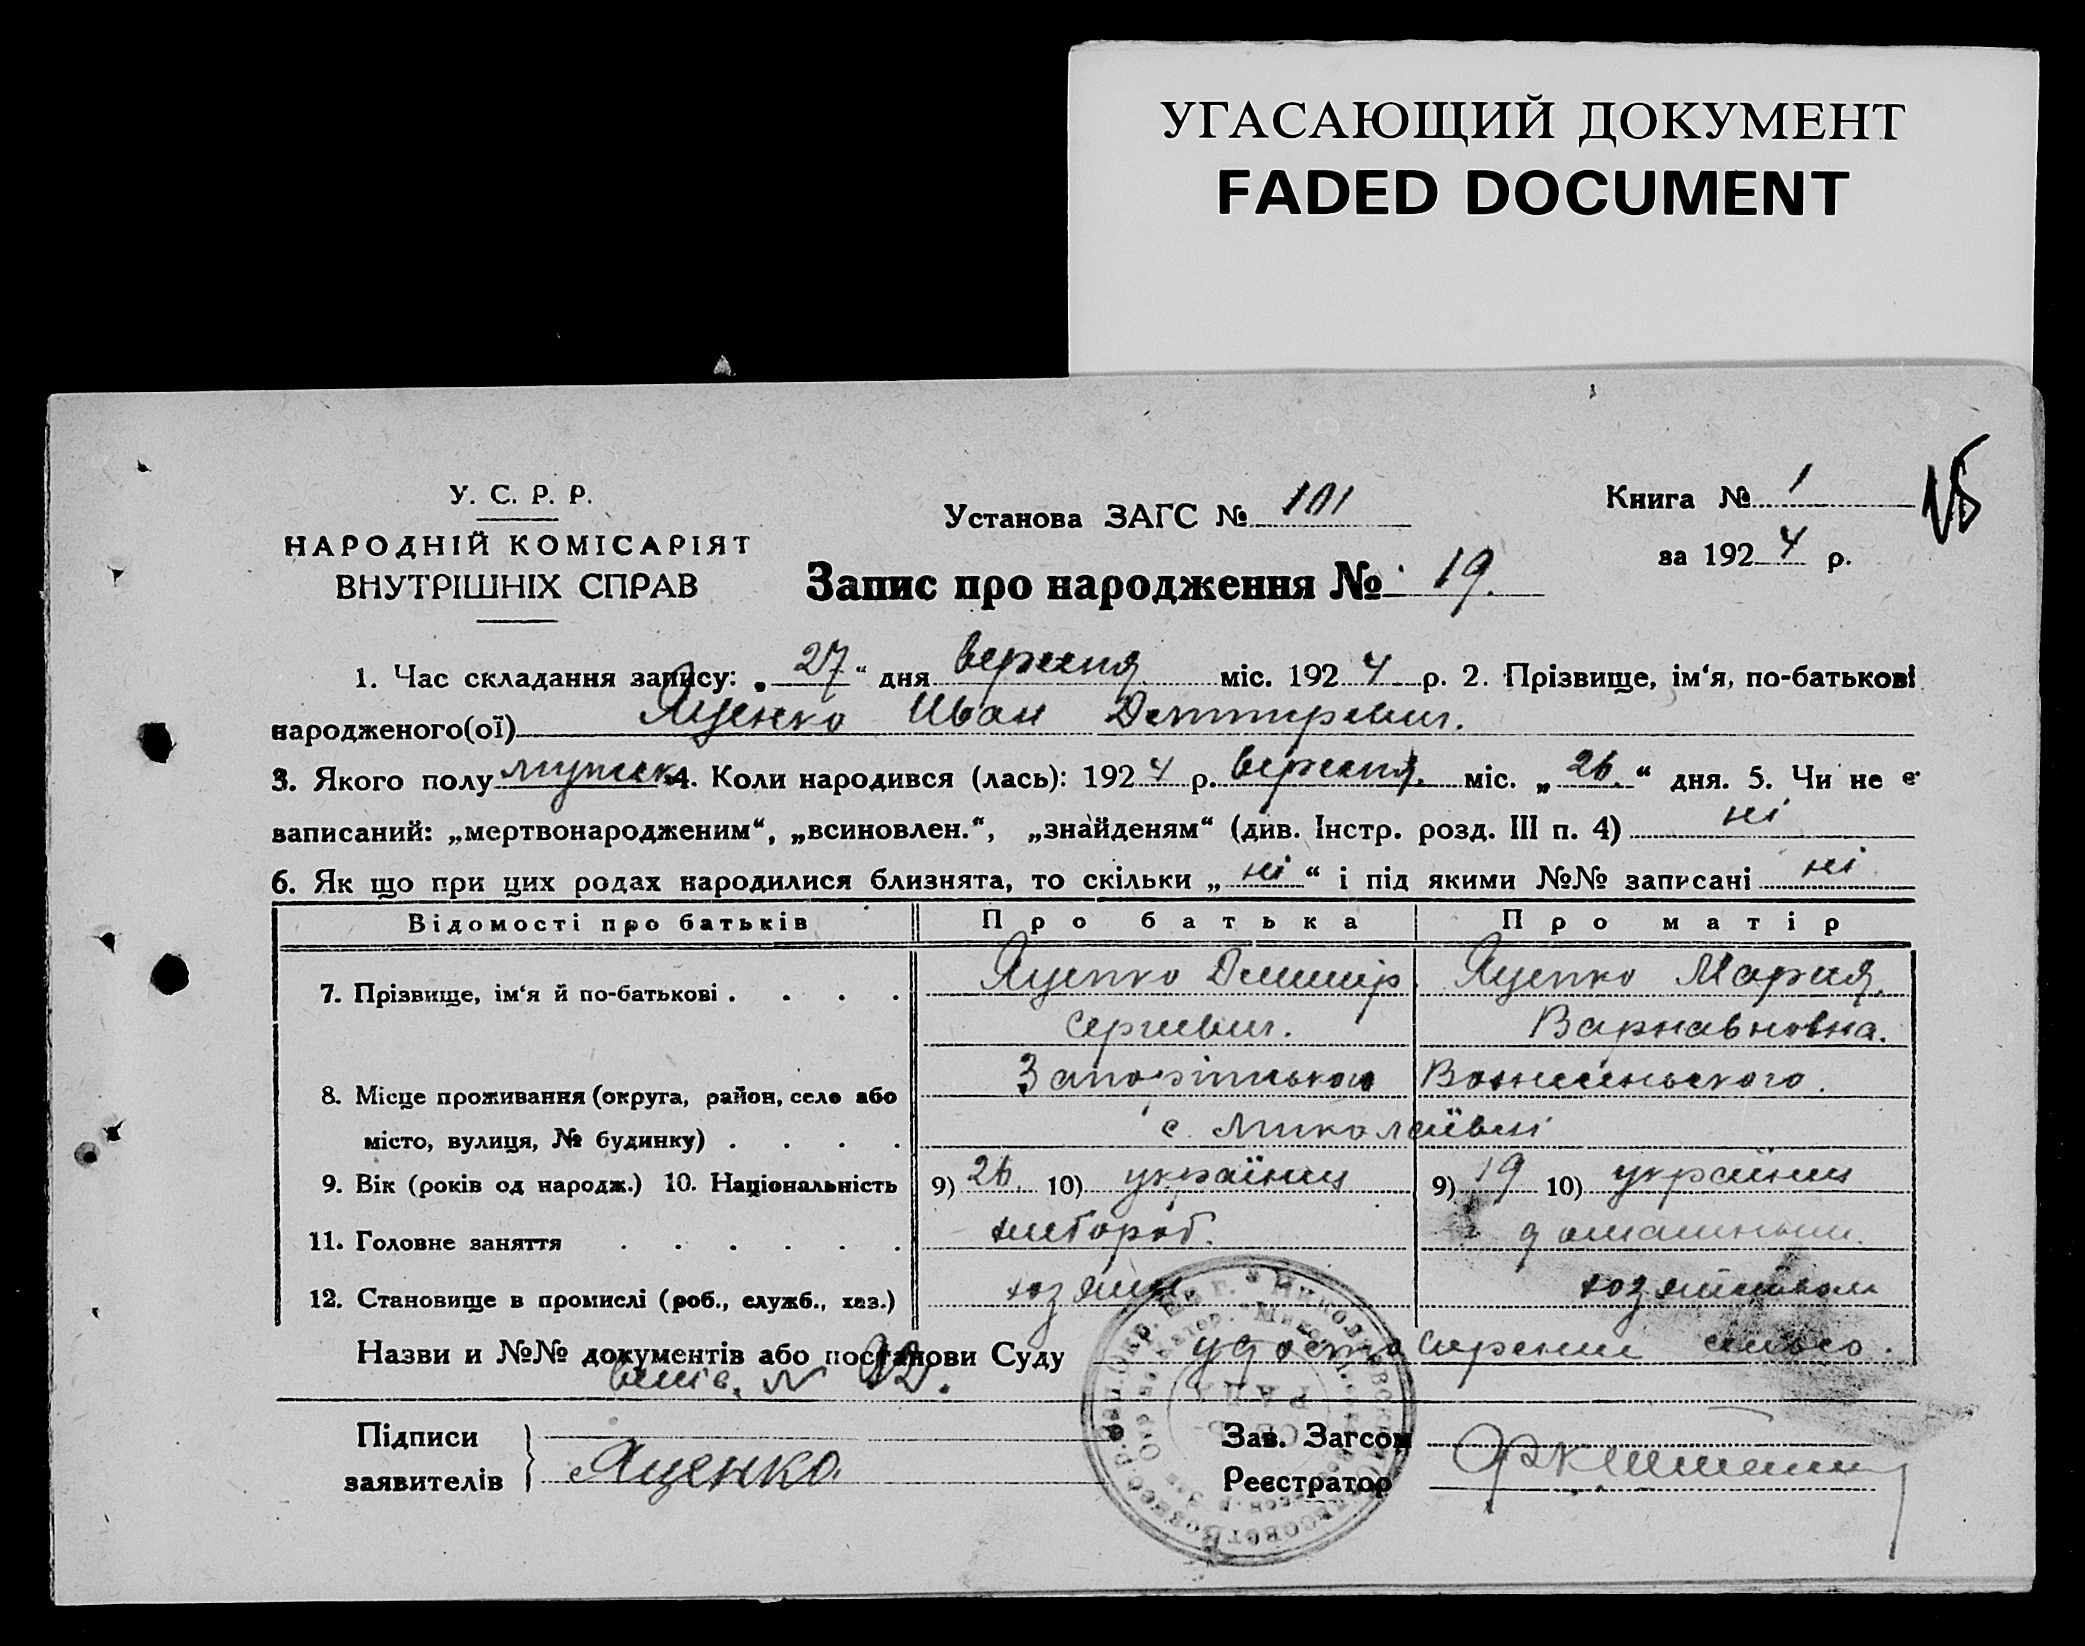 УГАСАЮЩИЙ ДОКУМЕНТ
FADED DOCUMENT
У. С. Р. Р.
НАРОДНІЙ КОМІСАРІЯТ
ВНУТРІШНІХ СПРАВ
Установа ЗАГС № 101
Книга № 1
за 1924 р.
Запис про народження № 19.
1. Час складання запису: „27“ дня вересня міс. 1924 р. 2. Прізвище, ім‘я, по-батькові
народженого(ої) Яценко Иван Демитревич.
3. Якого полу мужеск. 4. Коли народився (лась): 1924 р. вересня міс. „26.“ дня. 5. Чи не є
записаний: „мертвонародженим“, „всиновлен.“, „знайденям“ (див. Інстр. розд. III п. 4) ні
6. Як що при цих родах народилися близнята, то скільки „ні“ і під якими №№ записані ні
Відомості про батьків Про батька Про матір
7. Прізвище, ім‘я й по-батькові . . . . Яценко Демитр Яценко Мария
Сергиевич. Варнавновна.
8. Місце проживання (округа, район, село або Запорізького Вознесенського.
місто, вулиця, № будинку) . . . . с. Миколаївці
9. Вік (років од народж.) 10. Національність 9) 26. 10) українц 9) 19 10) українц
11. Головне заняття . . . . . . хлібороб. домашньим
12. Становище в промислі (роб., служб., хаз.) хозяин хозяйством
Назви и №№ документів або постанови Суду удостоверение сельсо.
№ 92.
Підписи
заявителів Яценко
Зав. Загсом
Реєстратор